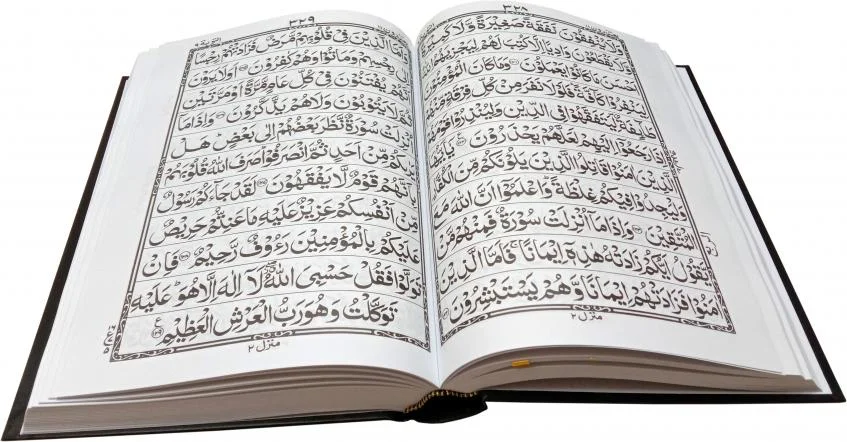 ٣٢٨
وَلَا يُنْفِقُوْنَ نَفَقَةً صَغِيْرَةً وَّلَا كَبِيْرَةً
يَقْطَعُوْنَ وَادِيًا اِلَّا كُتِبَ لَهُمْ لِيَجْزِيَهُمُ
اَحْسَنَ مَا كَانُوْا يَعْمَلُوْنَ وَمَا كَانَ الْمُؤْمِنُوْنَ
لِيَنْفِرُوْا كَآفَّةً فَلَوْلَا نَفَرَ مِنْ كُلِّ فِرْقَةٍ
طَآئِفَةٌ لِّيَتَفَقَّهُوْا فِى الدِّيْنِ وَلِيُنْذِرُوْا قَوْمَهُمْ
اِذَا رَجَعُوْٓا اِلَيْهِمْ لَعَلَّهُمْ يَحْذَرُوْنَ يٰٓاَيُّهَا
الَّذِيْنَ اٰمَنُوْا قَاتِلُوا الَّذِيْنَ يَلُوْنَكُمْ مِّنَ الْكُفَّارِ
وَلْيَجِدُوْا فِيْكُمْ غِلْظَةً وَاعْلَمُوْٓا اَنَّ اللّٰهَ مَعَ
الْمُتَّقِيْنَ وَاِذَا مَآ اُنْزِلَتْ سُوْرَةٌ فَمِنْهُمْ مَّنْ
يَّقُوْلُ اَيُّكُمْ زَادَتْهُ هٰذِهٖٓ اِيْمَانًا فَاَمَّا الَّذِيْنَ
اٰمَنُوْا فَزَادَتْهُمْ اِيْمَانًا وَّهُمْ يَسْتَبْشِرُوْنَ
منزل ٢
٣٢٩
وَاَمَّا الَّذِيْنَ فِيْ قُلُوْبِهِمْ مَّرَضٌ فَزَادَتْهُمْ رِجْسًا
اِلٰى رِجْسِهِمْ وَمَاتُوْا وَهُمْ كٰفِرُوْنَ اَوَلَا يَرَوْنَ
اَنَّهُمْ يُفْتَنُوْنَ فِيْ كُلِّ عَامٍ مَّرَّةً اَوْ مَرَّتَيْنِ
ثُمَّ لَا يَتُوْبُوْنَ وَلَا هُمْ يَذَّكَّرُوْنَ وَاِذَا مَآ
اُنْزِلَتْ سُوْرَةٌ نَّظَرَ بَعْضُهُمْ اِلٰى بَعْضٍ هَلْ
يَرٰىكُمْ مِّنْ اَحَدٍ ثُمَّ انْصَرَفُوْا صَرَفَ اللّٰهُ قُلُوْبَهُمْ
بِاَنَّهُمْ قَوْمٌ لَّا يَفْقَهُوْنَ لَقَدْ جَآءَكُمْ رَسُوْلٌ
مِّنْ اَنْفُسِكُمْ عَزِيْزٌ عَلَيْهِ مَا عَنِتُّمْ حَرِيْصٌ
عَلَيْكُمْ بِالْمُؤْمِنِيْنَ رَءُوْفٌ رَّحِيْمٌ فَاِنْ
تَوَلَّوْا فَقُلْ حَسْبِيَ اللّٰهُ لَآ اِلٰهَ اِلَّا هُوَ عَلَيْهِ
تَوَكَّلْتُ وَهُوَ رَبُّ الْعَرْشِ الْعَظِيْمِ
منزل ٢